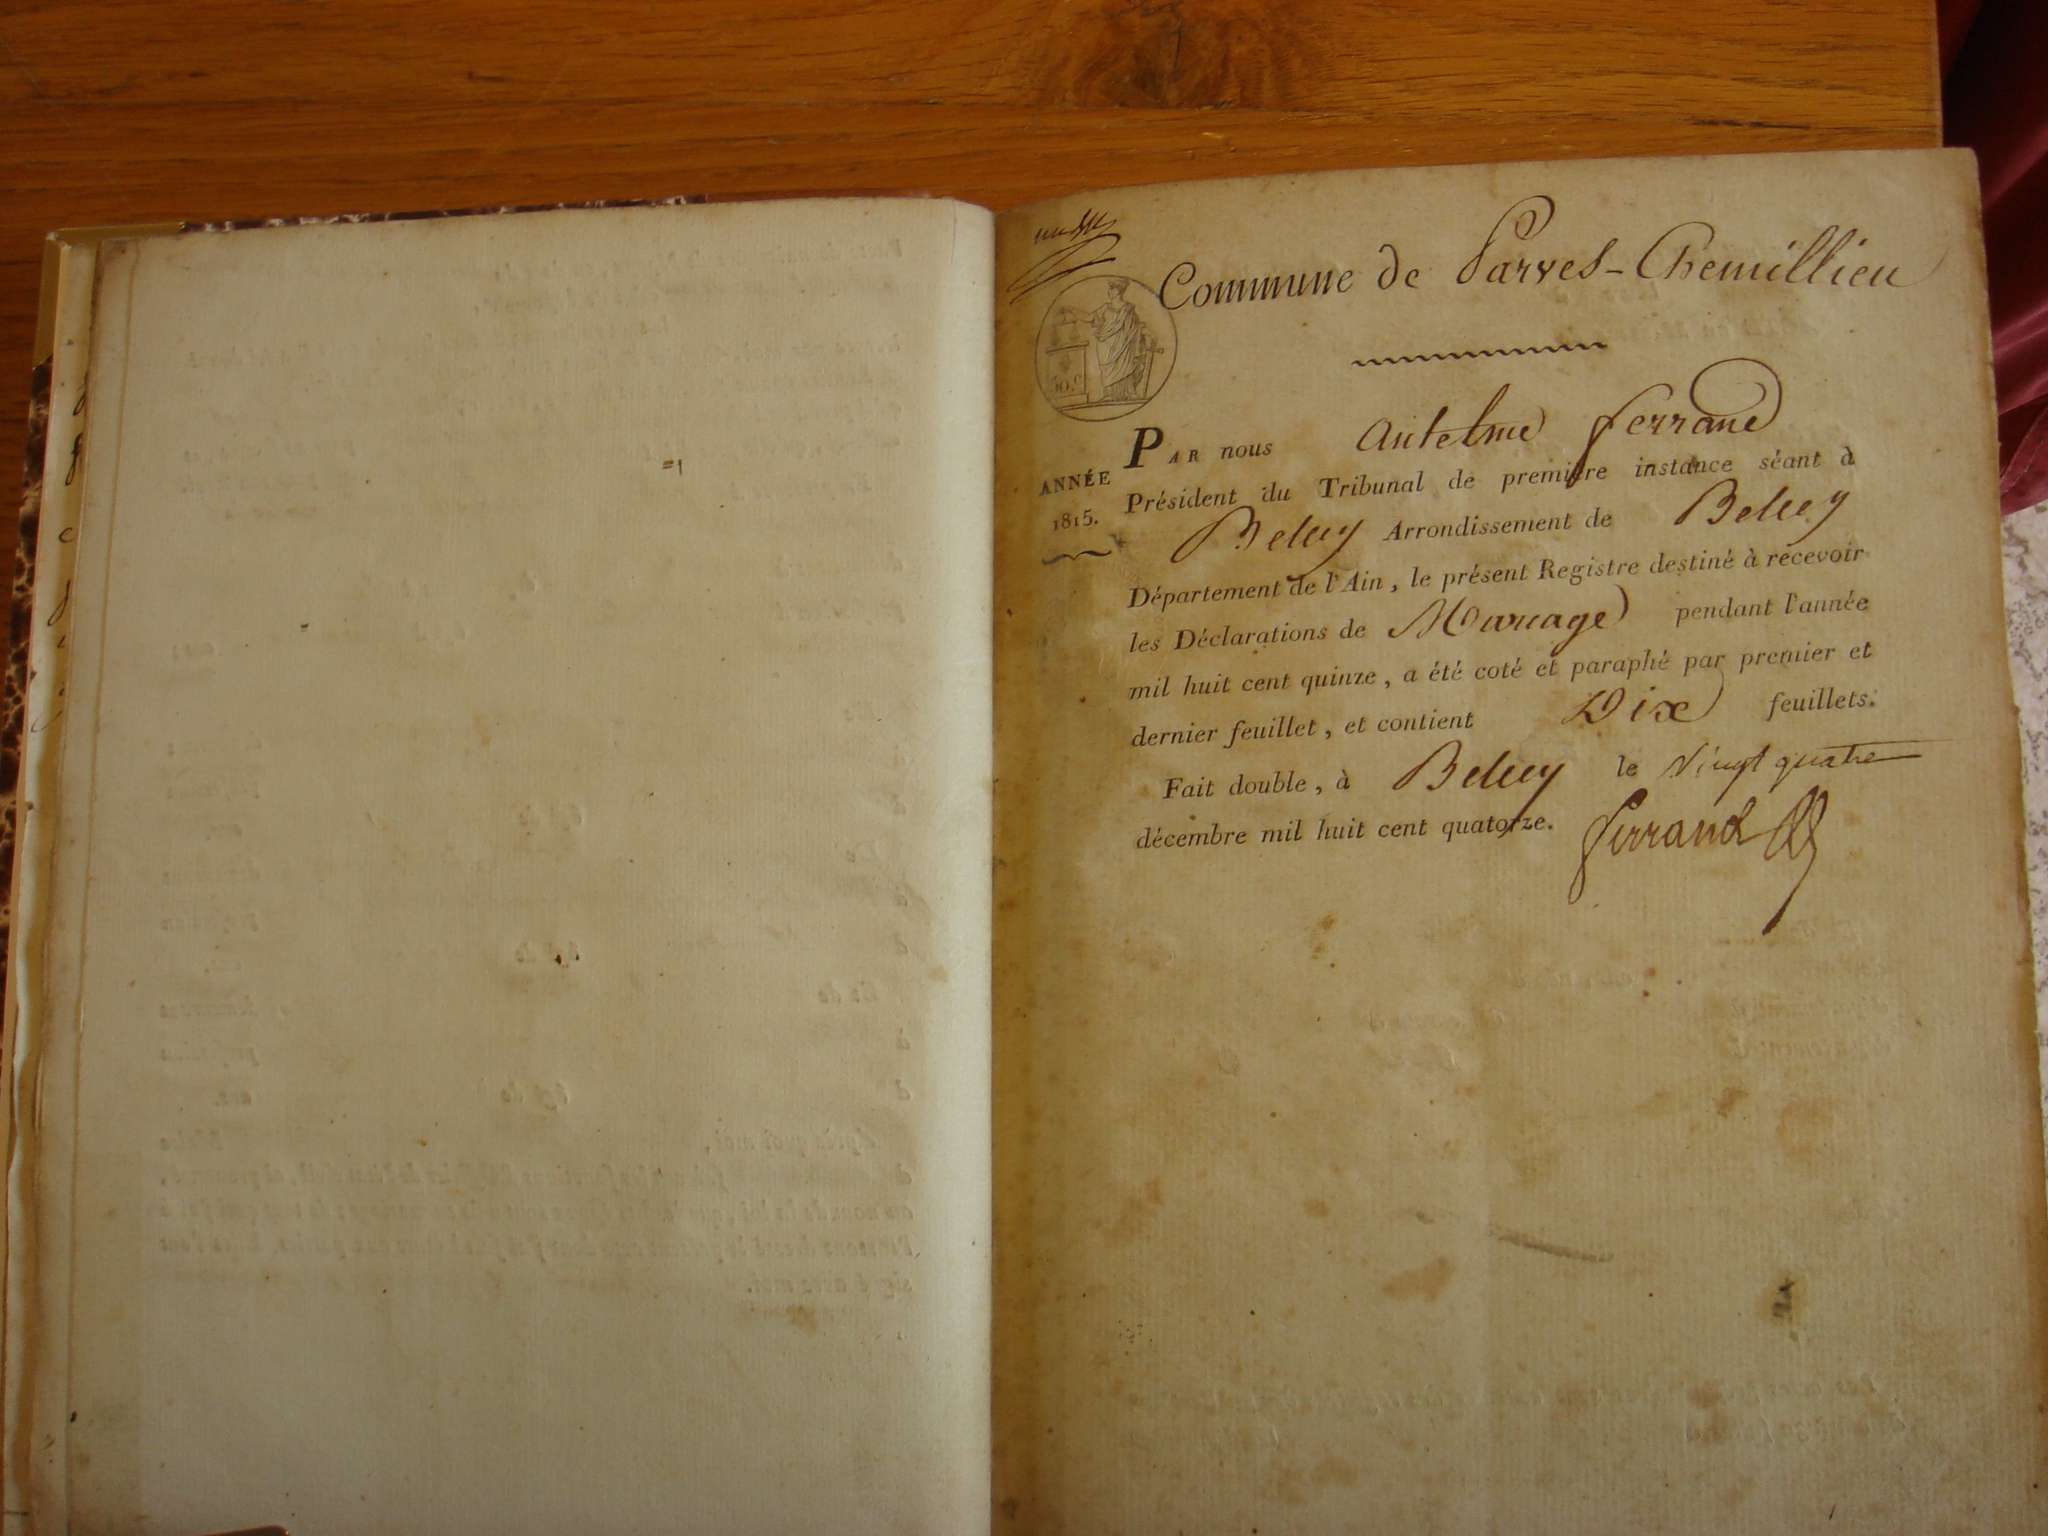 Commune de Parves-Chemillieu
50.C
ANNÉE
1815.
PAR nous Antelme Ferrand
Président du Tribunal de première instance séant à
Belley Arrondissement de Belley
Département de l'Ain, le présent Registre destiné à recevoir
les Déclarations de Mariage pendant l'année
mil huit cent quinze, a été coté et paraphé par premier et
dernier feuillet, et contient Dix feuillets.
Fait double, à Belley le vingt quatre
décembre mil huit cent quatorze.
Ferrand